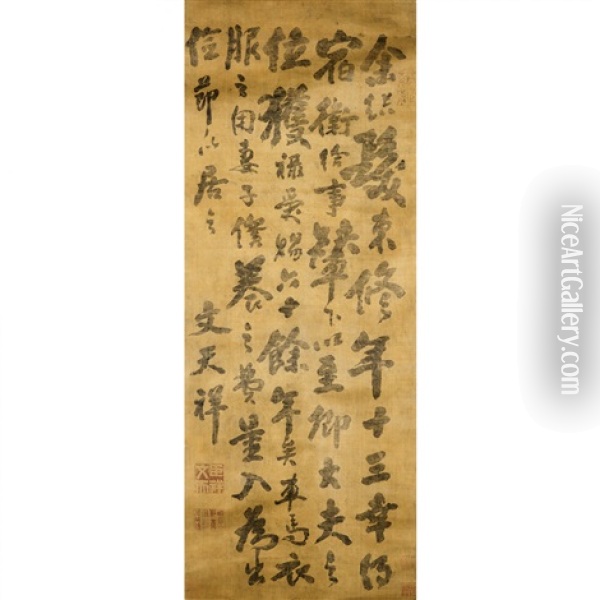 余結髮束修年十三幸得
宿衛給事輦下以至卿大夫之
位獲祿受賜六十餘年矣車馬衣
服之用妻子僕養之費量入為出
儉節以居之
文天祥
NiceArtGallery.com